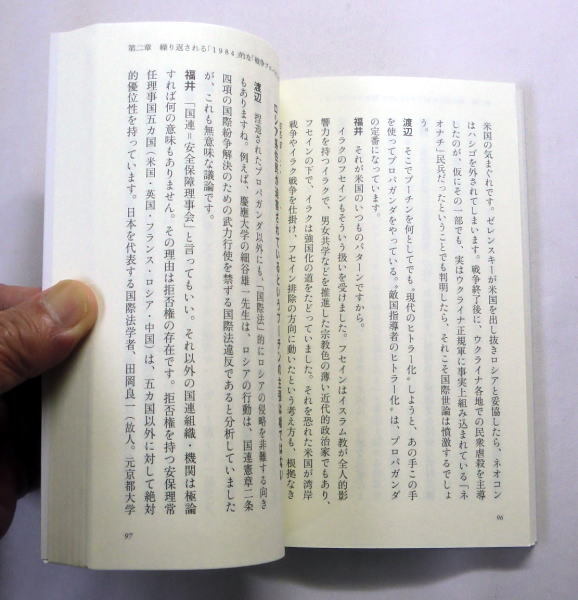 米国の気まぐれです。ゼレンスキーが米国を出し抜きロシアと妥協したら、ネオコン
はハシゴを外されてしまいます。戦争終了後に、ウクライナ各地での民衆虐殺を主導
したのが、仮にその一部でも、実はウクライナ正規軍に事実上組み込まれている〝ネ
オナチ〟民兵だったということでも判明したら、それこそ国際世論は憤激するでしょ
う。
渡辺 そこでプーチンを何としてでも〝現代のヒトラー化〟しようと、あの手この手
を使ってプロパガンダをやっている。〝敵国指導者のヒトラー化〟は、プロパガンダ
の定番になっています。
福井 それが米国のいつものパターンですから。
イラクのフセインもそういう扱いを受けました。フセインはイスラム教が全人的影
響力を持つイラクで、男女共学などを推進した宗教色の薄い近代的政治家でもあり、
フセインの下で、イラクは強国化の道をたどっていました。それを恐れた米国が湾岸
戦争やイラク戦争を仕掛け、フセイン排除の方向に動いたという考え方も、根拠なき
96
第二章 繰り返される「1984」的な「戦争プロ
渡辺 捏造されたプロパガンダ以外にも、「国際法」的にロシアの侵略を非難する向き
もありますね。例えば、慶應大学の細谷雄一先生は、ロシアの行動は、国連憲章二条
四項の国際紛争解決のための武力行使を禁ずる国際法違反であると分析していました
が、これも無意味な議論です。
福井 「国連=安全保障理事会」と言ってもいい。それ以外の国連組織・機関は極論
すれば何の意味もありません。その理由は拒否権の存在です。拒否権を持つ安保理常
任理事国五カ国(米国・英国・フランス・ロシア・中国)は、五カ国以外に対して絶対
的優位性を持っています。日本を代表する国際法学者、田岡良一(故人。元京都大学
97